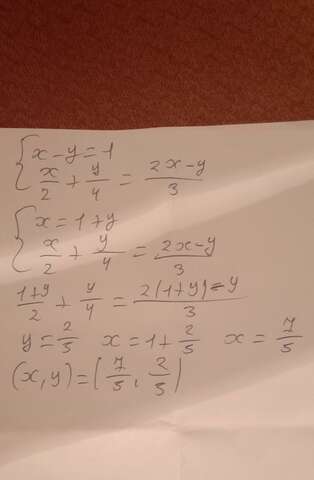 x-y=1
x/2 + y/4 = 2x-y/3
x=1+y
x/2 + y/4 = 2x-y/3
1+y/2 + y/4 = 2(1+y)-y/3
y=2/5 x=1+2/5 x=7/5
(x,y)=(7/5, 2/5)